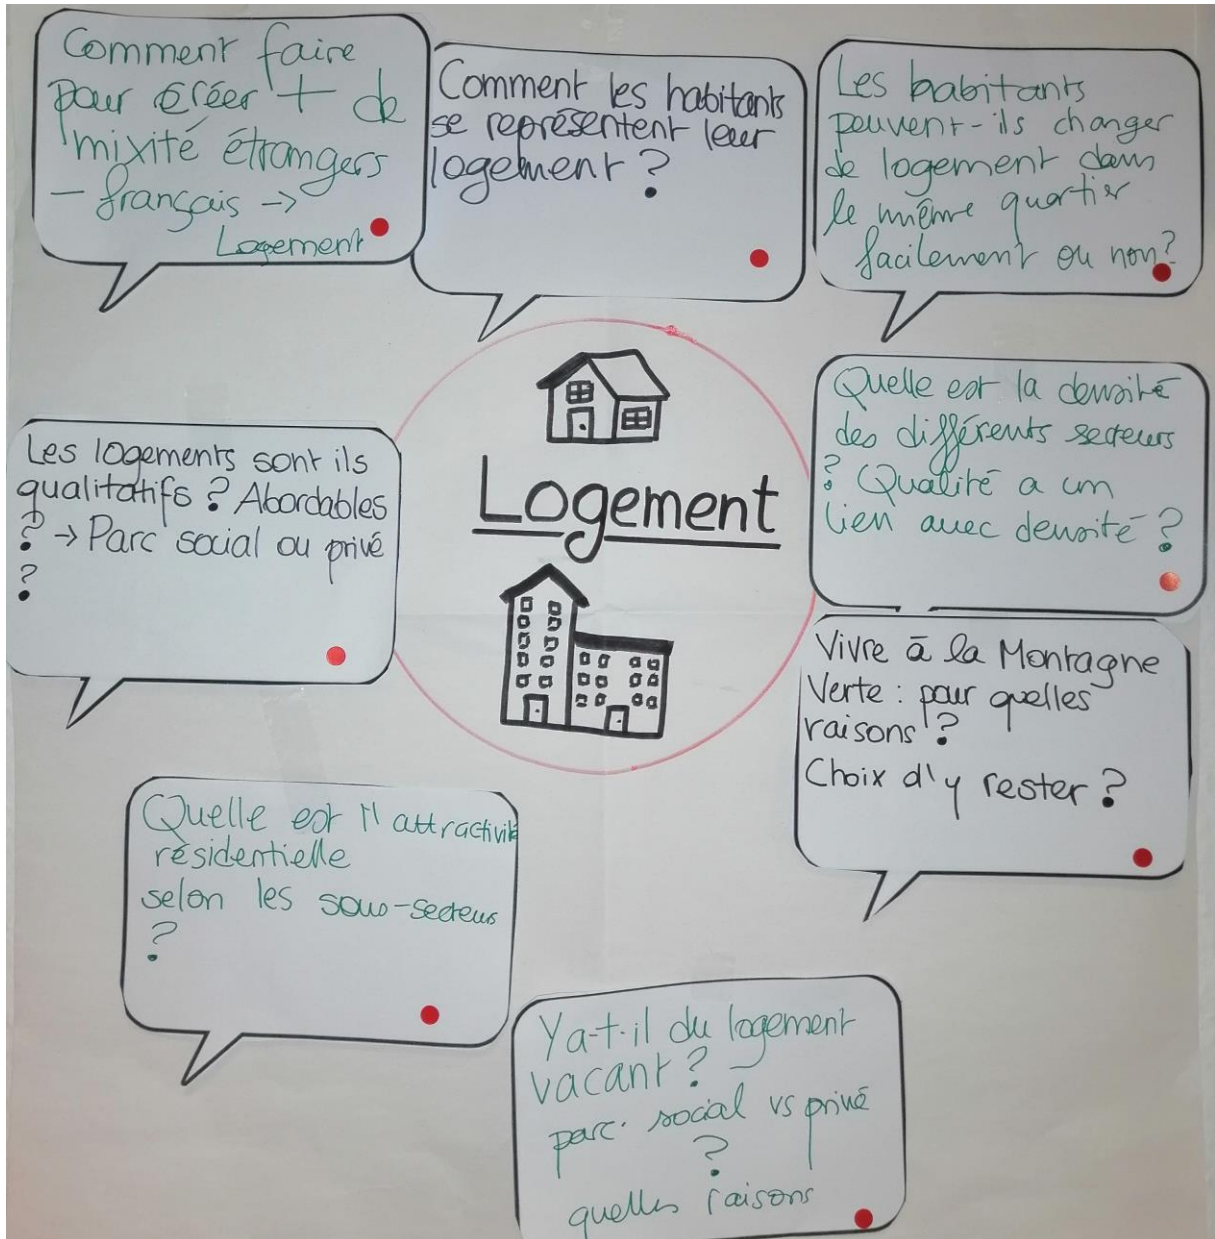 Comment faire
pour créer + de
mixité étrangers
- français ->
Logement
Comment les habitants
se représentent leur
logement ?
Les habitants
peuvent-ils changer
de logement dans
le même quartier
facilement ou non ?
Les logements sont ils
qualitatifs ? Abordables
? -> Parc social ou privé
?
Logement
Quelle est la densité
des différents secteurs
? Qualité a un
lien avec densité ?
Vivre à la Montagne
Verte : pour quelles
raisons ?
Choix d'y rester ?
Quelle est l'attractivité
résidentielle
selon les sous-secteurs
?
Y a-t-il du logement
vacant ?
parc social vs privé
?
quelles raisons